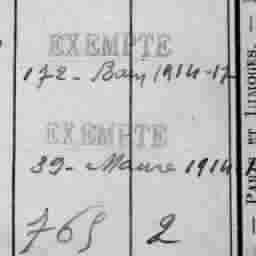 EXEMPTE
172 - Bay 1914-17
EXEMPTE
39 - Maure 1914
769 2
PAR ET LIMOGES.